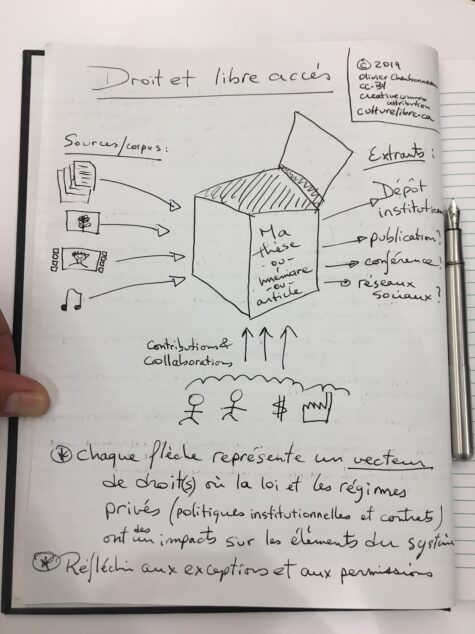 Droit et libre accès
© 2019
Olivier Charbonneau
CC-BY
creative commons
attribution
culturelibre.ca
Sources/corpus :
Extrants :
Dépôt
institution
publication?
conférence?
réseaux
sociaux?
Ma
thèse
-ou-
mémoire
-ou-
article
contributions &
collaborations
$
* Chaque flèche représente un vecteur
de droit(s) où la loi et les régimes
privés (politiques institutionnelles et contrats)
ont des impacts sur les éléments du système
* Réfléchir aux exceptions et aux permissions